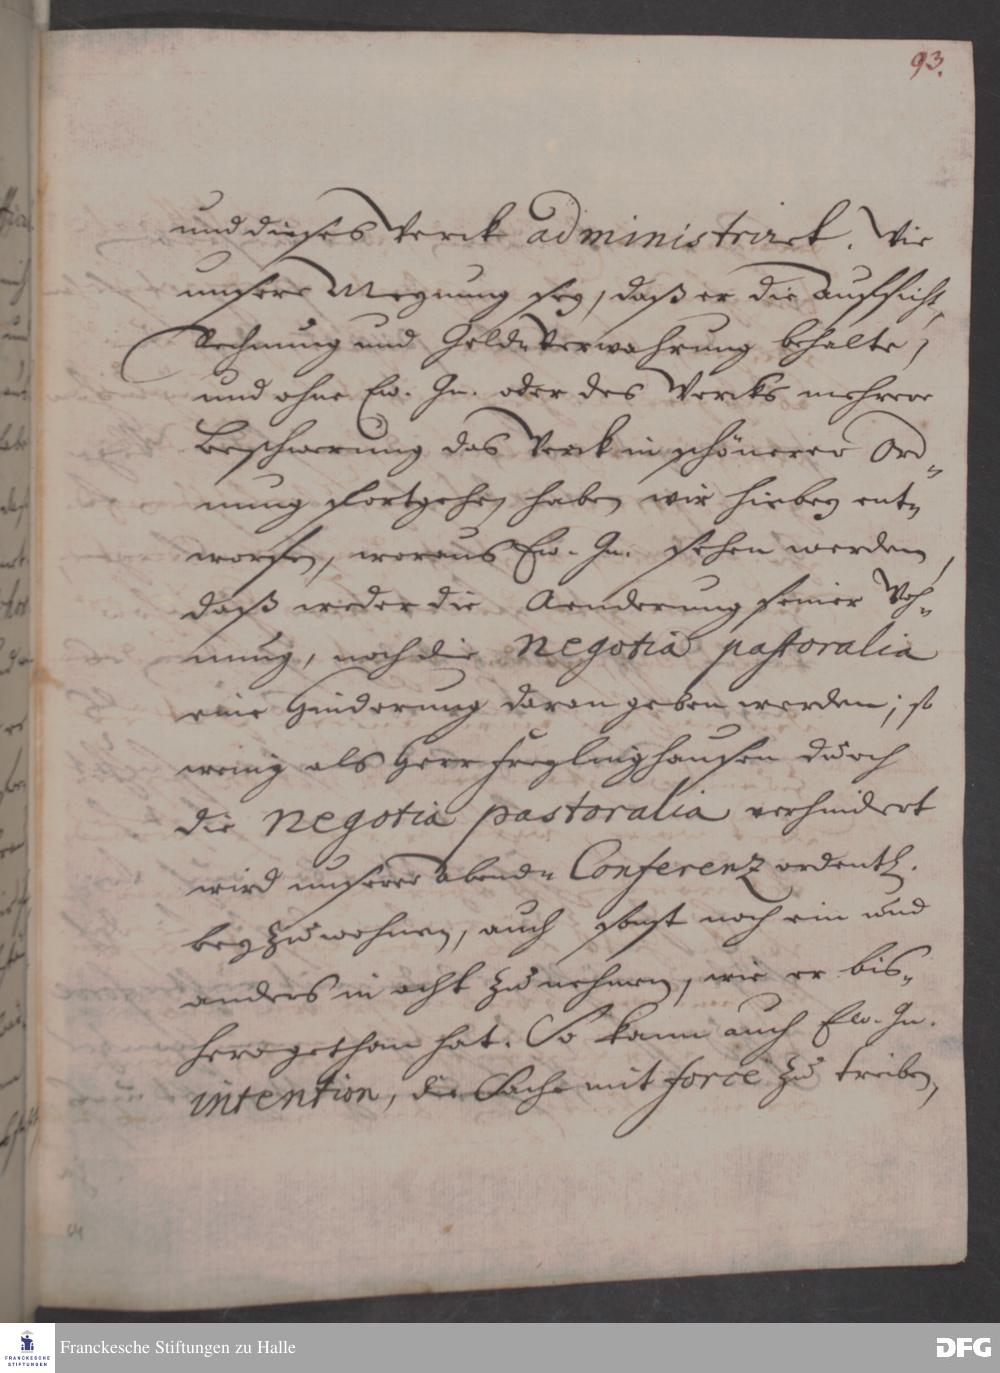 93.
und dieses Werck administrirt. Wie
unsere Meynung sey, daß er die Auffsicht,
Rechnung und Geld-Verwahrung behalte,
und ohne Ew. Gn. oder des Wercks mehrere
Beschwerung das Werck in schönerer Ord-
nung fortgehe, haben wir hierbey ent-
worfen, woraus Ew. Gn. sehen werden,
daß weder die Aenderung seiner Woh-
nung, noch die negotia pastoralia
eine Hinderung daran geben werden; so
wenig als Herr Freylinghausen durch
die negotia pastoralia verhindert
wird unserer abend-Conferenz ordentl.
beyzuwohnen, auch sonst noch ein und
anders in acht zu nehmen, wie er bis-
hero gethan hat. So kann auch Ew. Gn.
intention, die Sache mit force zu treiben,
FRANCKESCHE
STIFTUNGEN
Franckesche Stiftungen zu Halle
DFG